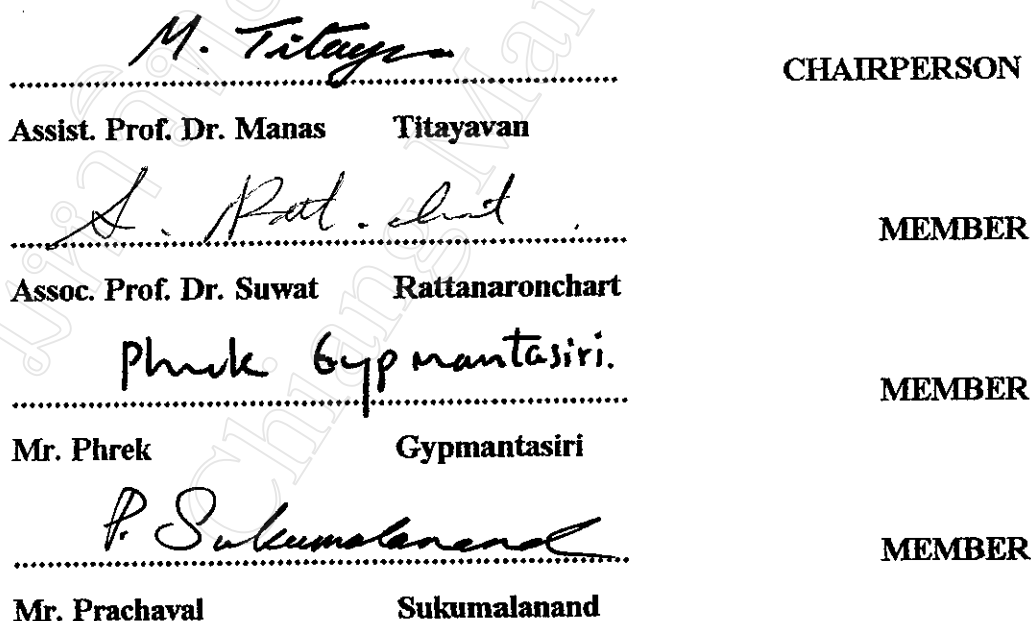 M. Titaya
CHAIRPERSON
Assist. Prof. Dr. Manas Titayavan
S. Ratt. chart.
MEMBER
Assoc. Prof. Dr. Suwat Rattanaronchart
Phrek Gypmantasiri.
MEMBER
Mr. Phrek Gypmantasiri
P. Sukumalanand
MEMBER
Mr. Prachaval Sukumalanand
Chiang Ma